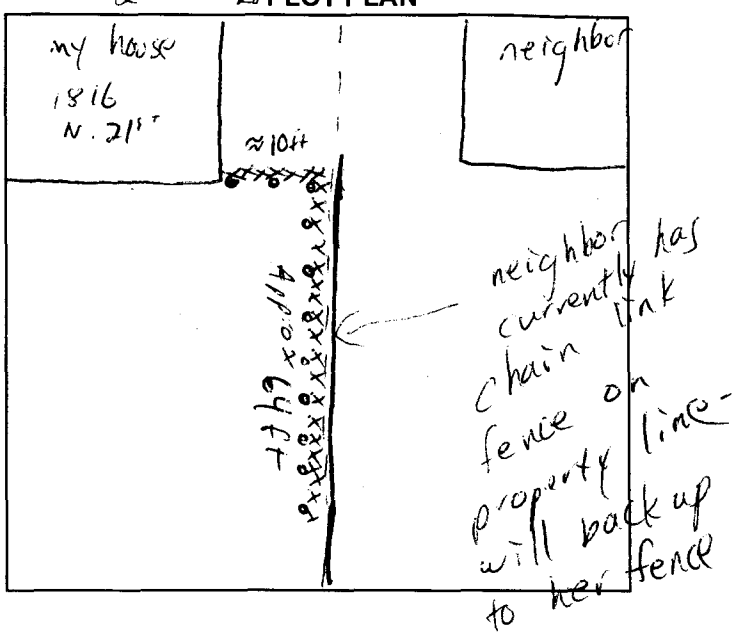 PLOT PLAN
my house
1816
N. 21st
neighbor
≈10ft
Approx 64ft
neighbor
currently has
chain link
fence on
property line-
will back up
to her fence